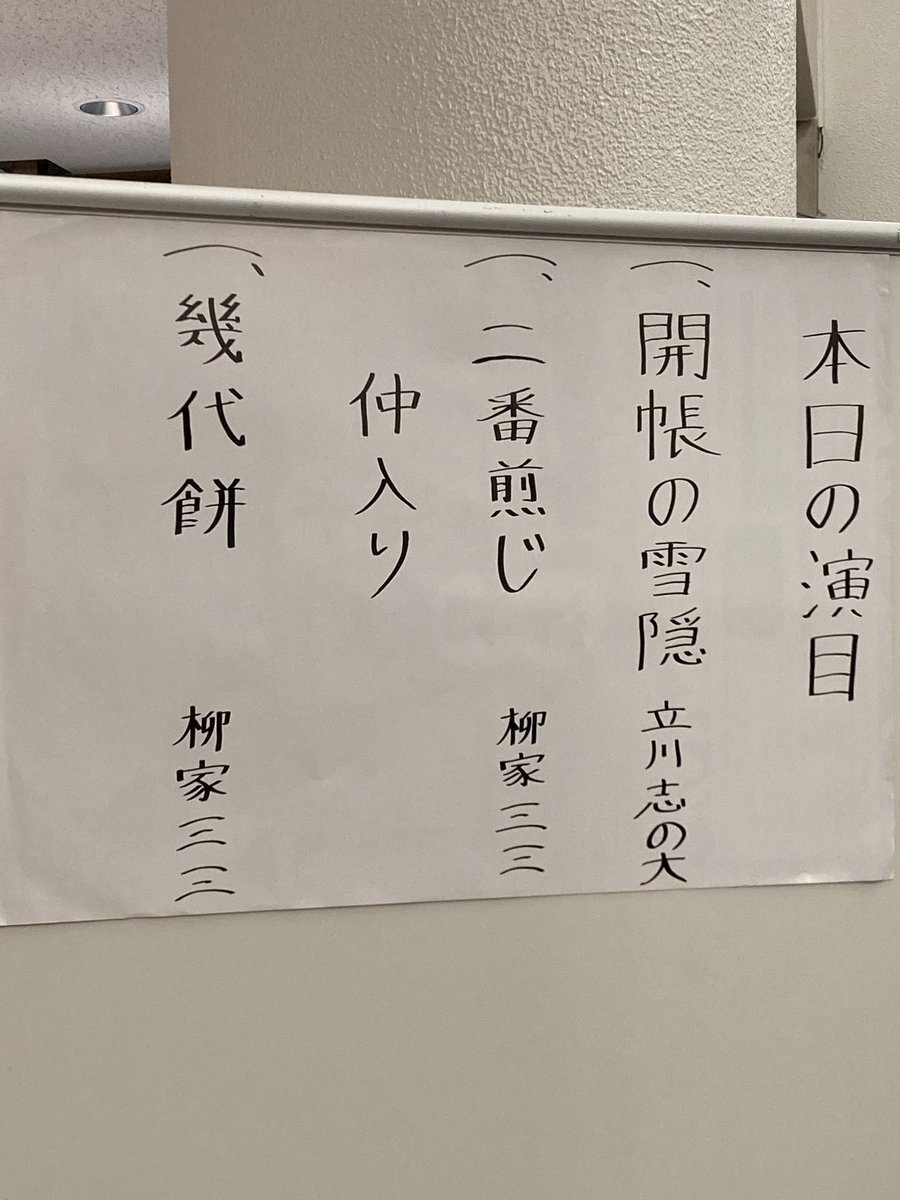 本日の演目
一、開帳の雪隠 立川志の太
一、二番煎じ 柳家三三
仲入り
一、幾代餅 柳家三三